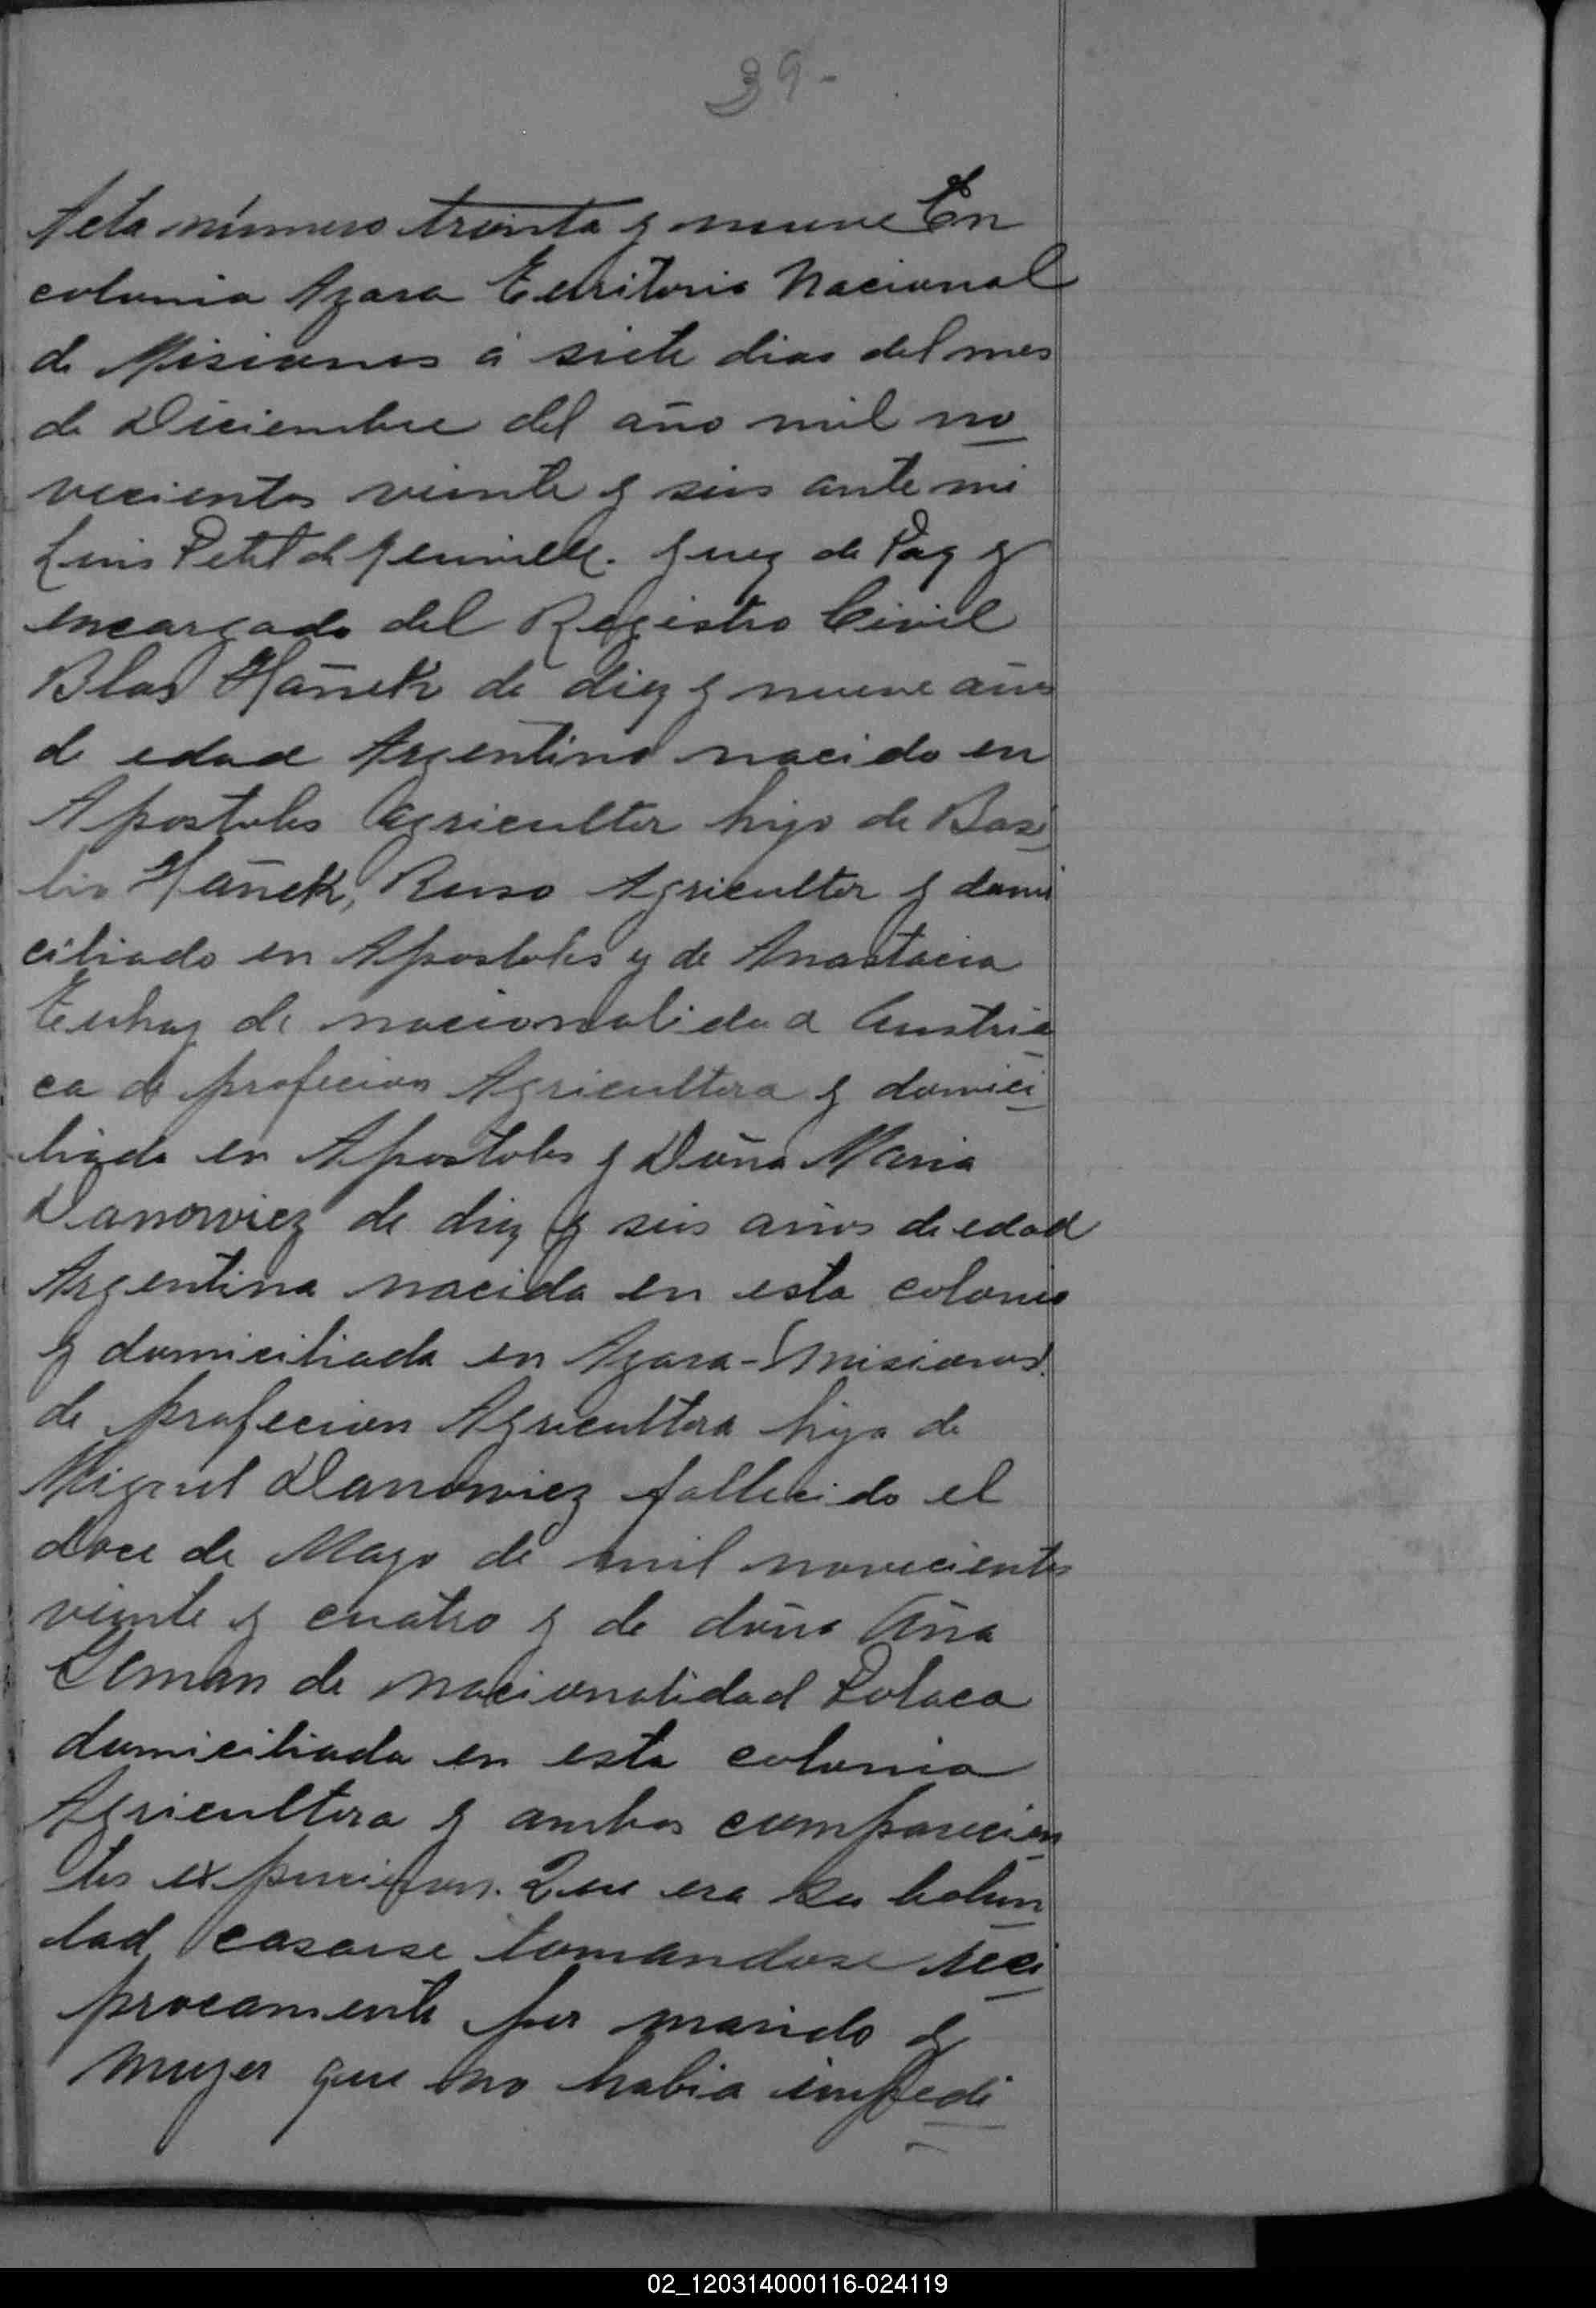 39-
Acta número treinta y nueve En
colonia Azara Territorio Nacional
de Misiones á siete dias del mes
de Diciembre del año mil no
vecientos veinte y seis ante mi
Luis Petit de Juez de Paz y
encargado del Registro Civil
Blas Hañek de diez y nueve años
de edad Argentino nacido en
Apostoles Agricultor hijo de Basi
lio Hañek, Ruso Agricultor y domi
ciliado en Apostoles y de Anastacia
de nacionalidad Austria
ca de profecion Agricultora y domici
liada en Apostoles y Doña Maria
Danowicz de diez y seis años de edad
Argentina nacida en esta colonia
y domiciliada en Azara-(Misiones)
de profecion Agricultora hija de
Miguel Danowicz fallecido el
doce de Mayo de mil novecientos
veinte y cuatro y de doña Ana
de nacionalidad Polaca
domiciliada en esta colonia
Agricultora y ambos comparecien
tes expucieron. Que era su bolun
tad casarse tomandose reci
procamente por marido y
mujer que no habia impedi
02_120314000116-024119